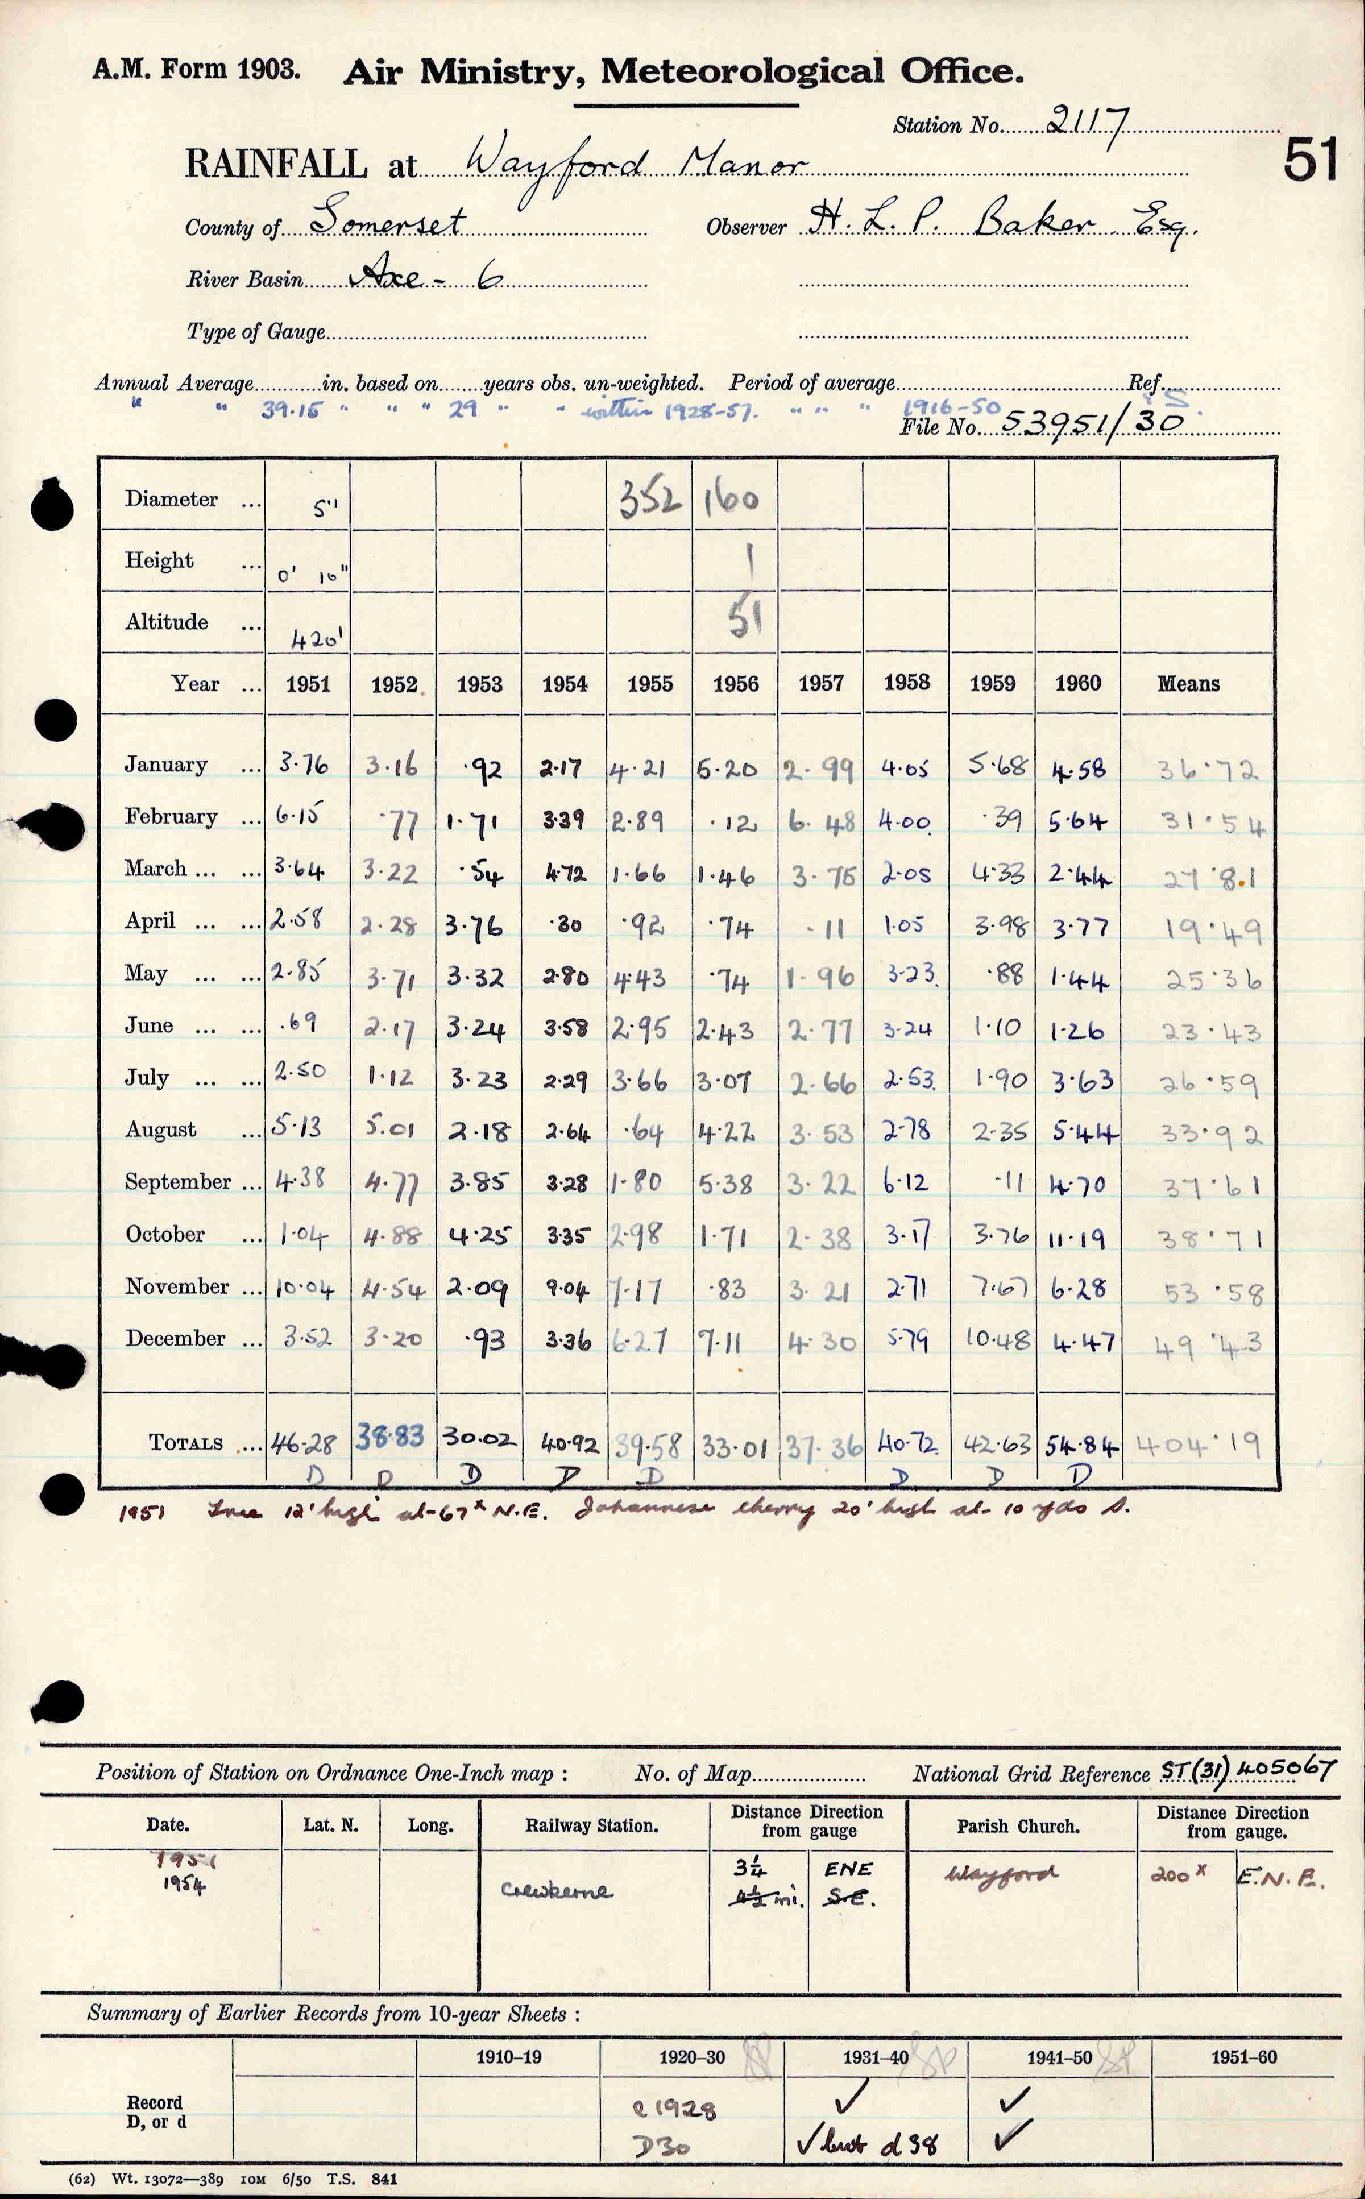 A.M. Form 1903. Air Ministry, Meteorological Office.
Station No. 2117
51
RAINFALL at Wayford Manor
County of Somerset Observer H. L. P. Baker Esq.
River Basin Axe - 6
Type of Gauge
Annual Average in. based on years obs. un-weighted. Period of average Ref.
" " 39.15 " " " 29 " " within 1928-57. " " " 1916-50
File No. 53951/30
Diameter ... 5" 352 160
Height ... 0' 10" 1
Altitude ... 420' 51
Year ... 1951 1952 1953 1954 1955 1956 1957 1958 1959 1960 Means
January ... 3.76 3.16 .92 2.17 4.21 5.20 2.99 4.05 5.68 4.58 36.72
February ... 6.15 .77 1.71 3.39 2.89 .12 6.48 4.00 .39 5.64 31.54
March ... ... 3.64 3.22 .54 4.72 1.66 1.46 3.75 2.05 4.33 2.44 27.81
April ... ... 2.58 2.28 3.76 .30 .92 .74 .11 1.05 3.98 3.77 19.49
May ... ... 2.85 3.71 3.32 2.80 4.43 .74 1.96 3.23 .88 1.44 25.36
June ... ... .69 2.17 3.24 3.58 2.95 2.43 2.77 3.24 1.10 1.26 23.43
July ... ... 2.50 1.12 3.23 2.29 3.66 3.07 2.66 2.53 1.90 3.63 26.59
August ... 5.13 5.01 2.18 2.64 .64 4.22 3.53 2.78 2.35 5.44 33.92
September ... 4.38 4.77 3.85 3.28 1.80 5.38 3.22 6.12 .11 4.70 37.61
October ... 1.04 4.88 4.25 3.35 2.98 1.71 2.38 3.17 3.76 11.19 38.71
November ... 10.04 4.54 2.09 9.04 7.17 .83 3.21 2.71 7.67 6.28 53.58
December ... 3.52 3.20 .93 3.36 6.27 7.11 4.30 5.79 10.48 4.47 49.43
TOTALS ... 46.28 38.83 30.02 40.92 39.58 33.01 37.36 40.72 42.63 54.84 404.19
D D D D D D D D
1951 Tree 12' high at 67x N.E. Johannese cherry 20' high at 10 yds S.
Position of Station on Ordnance One-Inch map : No. of Map National Grid Reference ST(31) 405067
Date. Lat. N. Long. Railway Station. Distance Direction from gauge Parish Church. Distance Direction from gauge.
1951 3¼ ENE Wayford 200x E.N.E.
1954 Crewkerne 4½ mi. S.E.
Summary of Earlier Records from 10-year Sheets :
1910–19 1920–30 1931–40 1941–50 1951–60
Record ✓ ✓
D, or d c1928
D30 ✓ but d38 ✓
(62) Wt. 13072—389 10M 6/50 T.S. 841